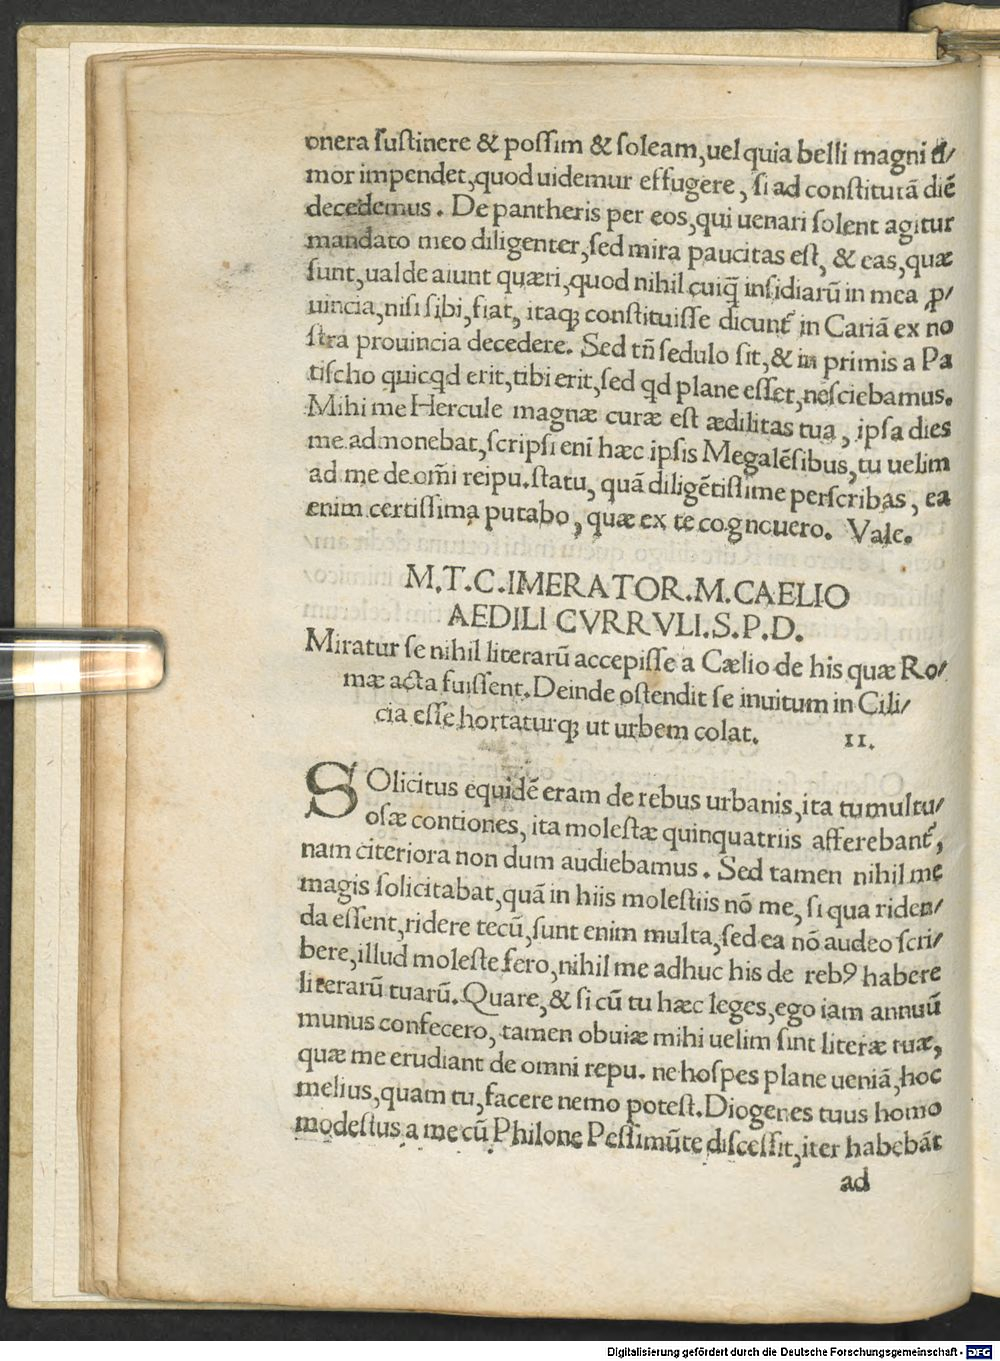 onera ſuſtinere & poſſim & ſoleam,uel quia belli magni ti/
mor impendet,quod uidemur effugere, ſi ad conſtitutã diẽ
decedemus. De pantheris per eos,qui uenari ſolent agitur
mandato meo diligenter,ſed mira paucitas eſt, & eas,quæ
ſunt,ualde aiunt quæri,quod nihil cuiq̃ inſidiarũ in mea ꝓ/
uincia,niſi ſibi,fiat, itaqꝫ conſtituiſſe dicunt᷑ in Cariã ex no
ſtra prouincia decedere. Sed tñ ſedulo fit,& in primis a Pa
tiſcho quicqd erit,tibi erit,ſed qd plane eſſet,neſciebamus.
Mihi me Hercule magnæ curæ eſt ædilitas tua, ipſa dies
me admonebat,ſcripſi eni hæc ipſis Megalẽſibus,tu uelim
ad me de om̃i reipu.ſtatu, quã diligẽtiſſime perſcribas, ea
enim certiſſima putabo, quæ ex te cognouero. Vale.
M.T.C.IMERATOR.M.CAELIO
AEDILI CVRRVLI.S.P.D.
Miratur ſe nihil literarũ accepiſſe a Cælio de his quæ Ro/
mæ acta fuiſſent.Deinde oſtendit ſe inuitum in Cili/
cia eſſe,hortaturqꝫ ut urbem colat. II.
SOlicitus equidẽ eram de rebus urbanis,ita tumultu/
oſæ contiones, ita moleſtæ quinquatriis afferebant᷑,
nam citeriora non dum audiebamus. Sed tamen nihil me
magis ſolicitabat,quã in hiis moleſtiis nõ me, ſi qua riden/
da eſſent,ridere tecũ,ſunt enim multa,ſed ea nõ audeo ſcri/
bere,illud moleſte fero,nihil me adhuc his de rebꝰ habere
literarũ tuarũ.Quare,& ſi cũ tu hæc leges,ego iam annuũ
munus confecero, tamen obuiæ mihi uelim ſint literæ tuæ,
quæ me erudiant de omni repu. ne hoſpes plane ueniã,hoc
melius,quam tu,facere nemo poteſt.Diogenes tuus homo
modeſtus a me cũ Philone Peſſimũte diſceſſit,iter habebãt
ad
Digitalisierung gefördert durch die Deutsche Forschungsgemeinschaft - DFG